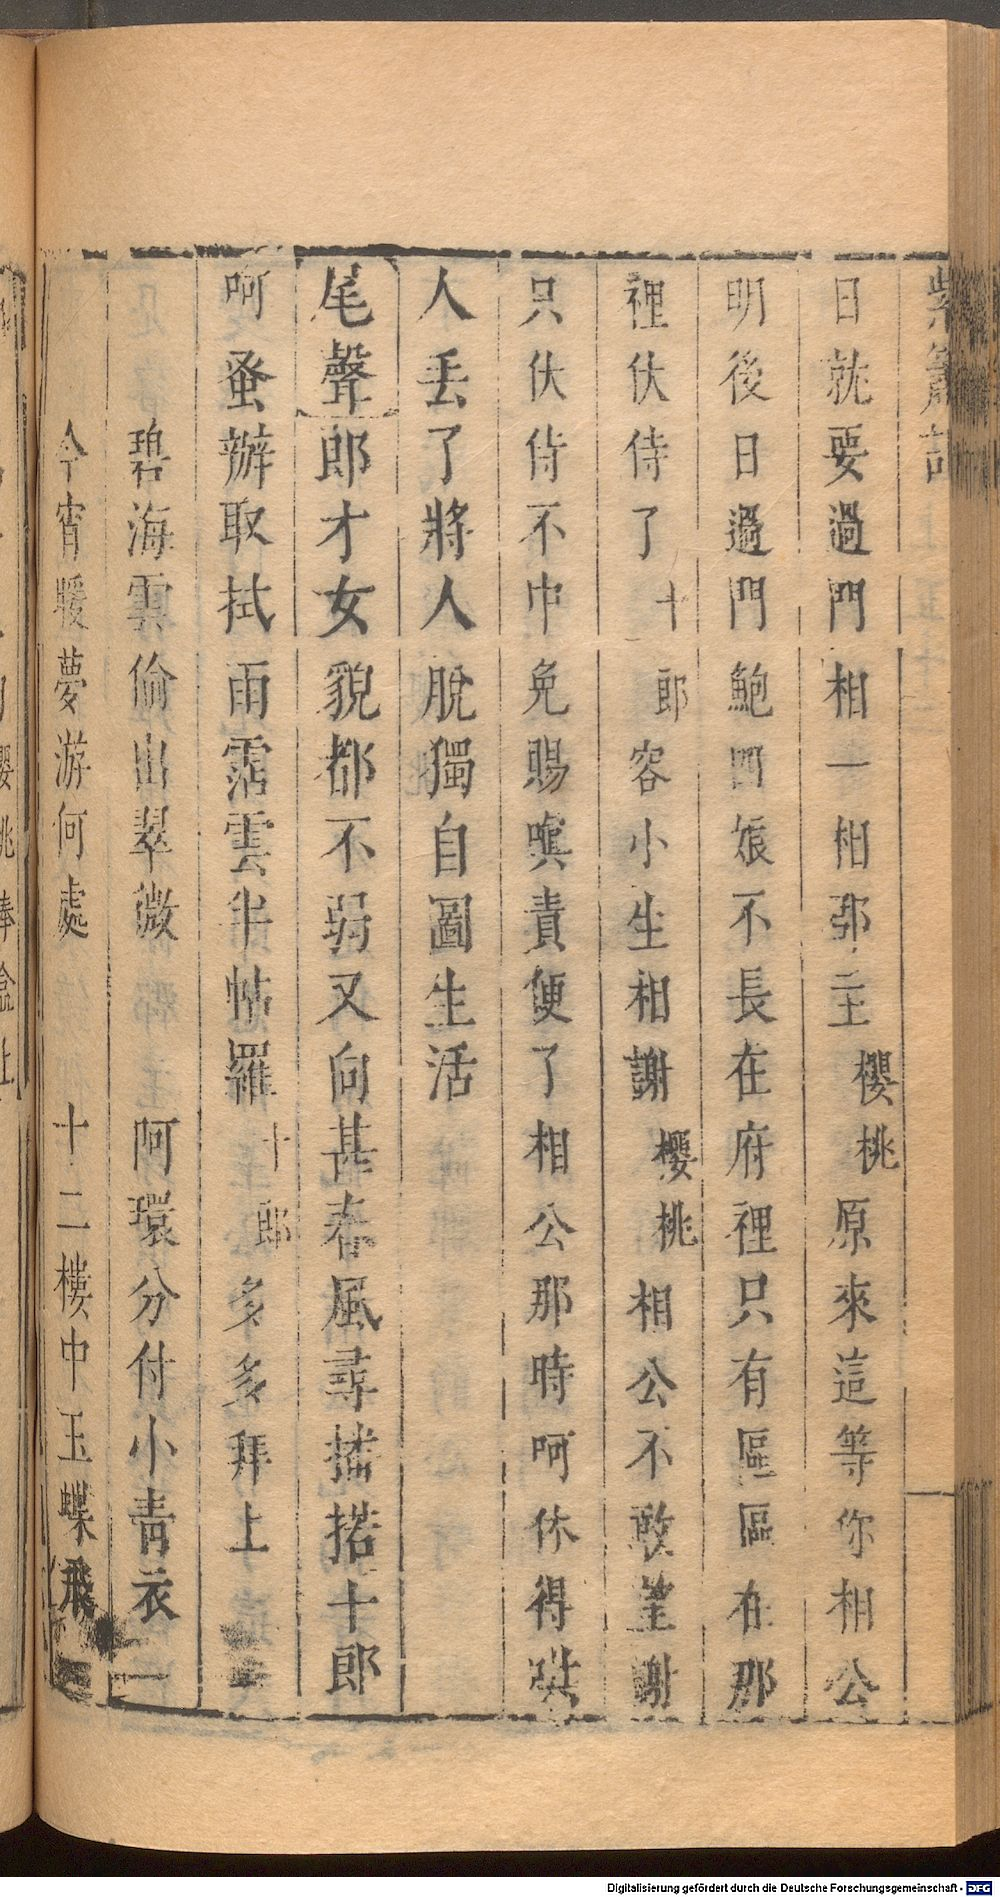 紫簫記
日就要過門相一相那二主櫻桃原來這等你相公
明後日過門鮑四娘不長在府裡只有區區在那
裡伏侍了十郎容小生相謝櫻桃相公不敢望謝
只伏侍不中免賜嗔責便了相公那時呵休得哄
人丟了將人脫獨自圖生活
尾聲郎才女貌都不弱又向甚春風尋搖搭十郎
呵蚤辦取拭雨霑雲半帖羅十郎多多拜上
碧海雲偷出翠微 阿環分付小青衣
今宵暖夢游何處 十二樓中玉蝶飛
櫻桃捧盒上
Digitalisierung gefördert durch die Deutsche Forschungsgemeinschaft - DFG